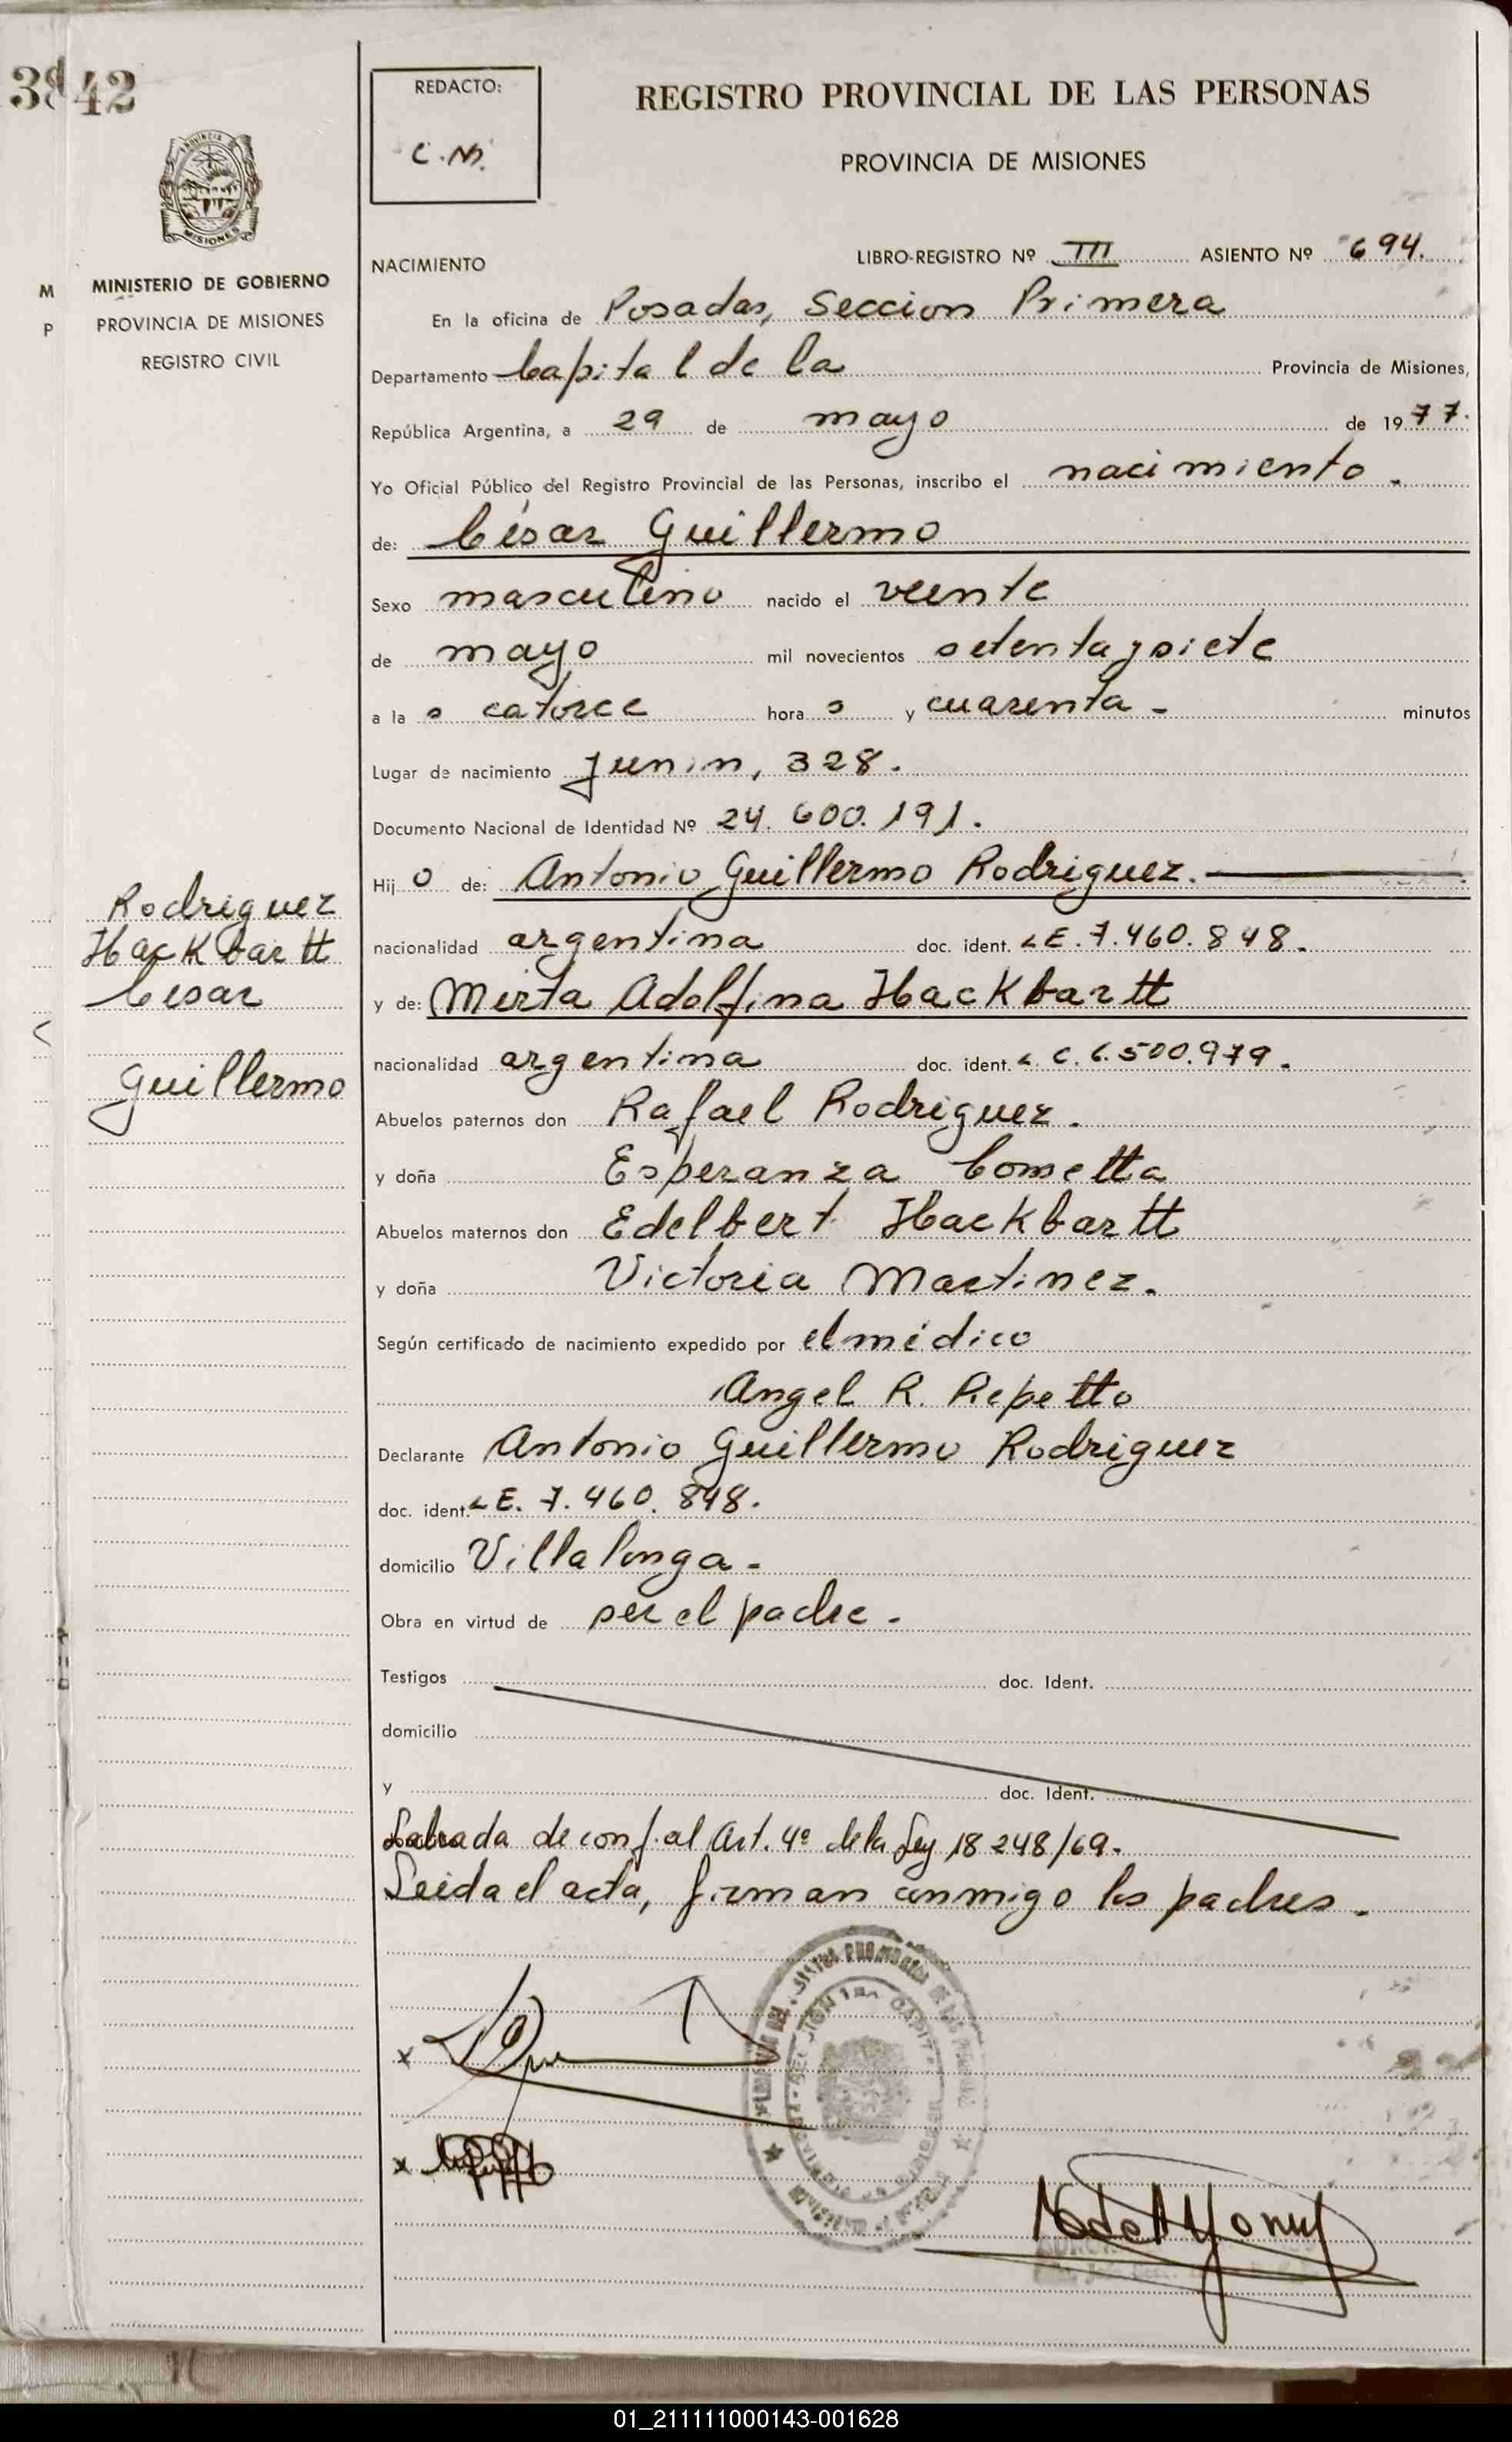 42
REDACTO:
C.M.
REGISTRO PROVINCIAL DE LAS PERSONAS
PROVINCIA DE MISIONES
M
P
MINISTERIO DE GOBIERNO
PROVINCIA DE MISIONES
REGISTRO CIVIL
NACIMIENTO
LIBRO-REGISTRO Nº III ASIENTO Nº 694.
En la oficina de Posadas, Seccion Primera
Departamento Capital de la Provincia de Misiones,
República Argentina, a 29 de mayo de 1977.
Yo Oficial Público del Registro Provincial de las Personas, inscribo el nacimiento.
de: César Guillermo
Sexo masculino nacido el veinte
de mayo mil novecientos setenta y siete
a la s catorce hora s y cuarenta - minutos
Lugar de nacimiento Junin, 328.
Documento Nacional de Identidad Nº 24.600.191.
Hij o de: Antonio Guillermo Rodriguez.
nacionalidad argentina doc. ident. LE. 7.460.848.
y de: Mirta Adolfina Hackbartt
nacionalidad argentina doc. ident. L.C. 6.500.979.
Abuelos paternos don Rafael Rodriguez.
y doña Esperanza Cometta
Abuelos maternos don Edelbert Hackbartt
y doña Victoria Martinez.
Según certificado de nacimiento expedido por el médico
Angel R. Repetto
Declarante Antonio Guillermo Rodriguez
doc. ident. LE. 7.460.848.
domicilio Villalonga.
Obra en virtud de ser el padre.
Testigos doc. Ident.
domicilio
y doc. Ident.
Labrada de conf. al Art. 4º de la Ley 18248/69.
Leida el acta, firman conmigo los padres.
Rodriguez
Hackbartt
César
Guillermo
01_211111000143-001628